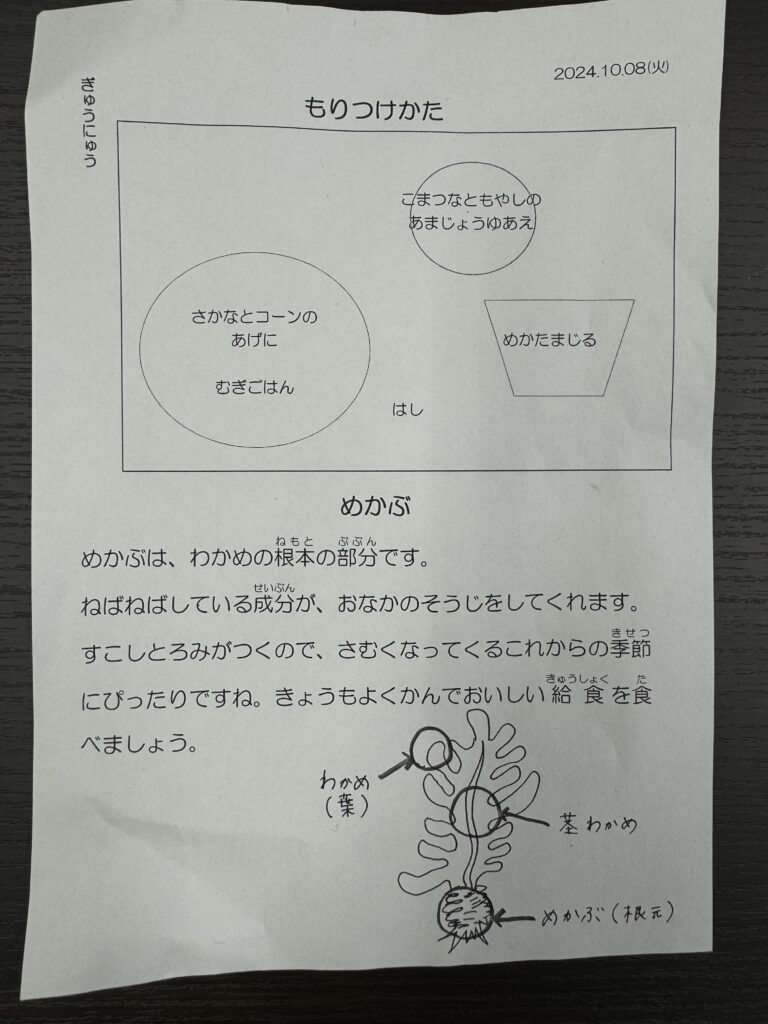 2024.10.08(火)
ぎゅうにゅう
もりつけかた
こまつなともやしの
あまじょうゆあえ
さかなとコーンの
あげに
むぎごはん
めかたまじる
はし
めかぶ
めかぶは、わかめの根本の部分です。
ねもと ぶぶん
ねばねばしている成分が、おなかのそうじをしてくれます。
せいぶん
すこしとろみがつくので、さむくなってくるこれからの季節
きせつ
にぴったりですね。きょうもよくかんでおいしい給食を食
きゅうしょく た
べましょう。
わかめ
(葉)
茎わかめ
めかぶ(根元)